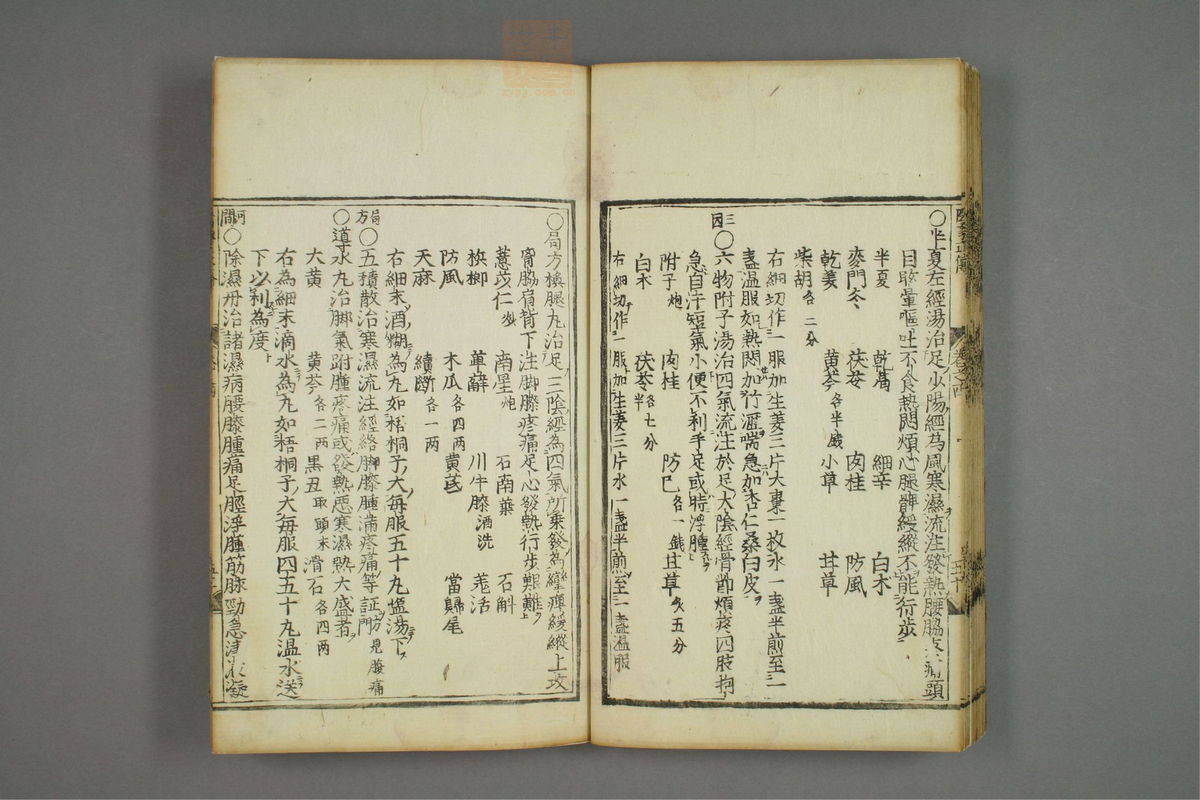 〇半夏左經湯治足少陽經為風寒濕流注發熱腰脇疼痛頭
目眩暈嘔吐不食熱悶煩心腿髀緩縱不能行步
半夏 乾葛 細辛 白朮
麥門冬 茯苓 肉桂 防風
乾姜 黄芩各半戔 小草 甘草
柴胡各二分
右細切作一服加生姜三片大棗一枚水一盞半煎至一
盞溫服如熱悶加竹瀝喘急加杏仁桑白皮
三因
〇六物附子湯治四氣流注於足太陰經骨節煩疼四肢拘
急自汗短氣小便不利手足或時浮腫
附子炮 肉桂 防巳各一錢 甘草炙五分
白朮 茯苓各七分半
右細切作一服加生姜三片水一盞半煎至一盞溫服
卷之四
五十
〇局方換腿丸治足三陰經為四氣所乘發為攣痺緩縱上攻
胷脇肩背下注脚膝疼痛足心發熱行步艱難
薏苡仁炒 南星炮 石南葉 石斛
梹榔 萆薢 川牛膝酒洗 羗活
防風 木瓜各四兩 黄芪 當歸尾
天麻 續斷各一兩
右細末酒糊為丸如梧桐子大每服五十丸塩湯下
局方
〇五積散治寒濕流注經絡脚膝腫滿疼痛等証方見腹痛門
〇導水丸治脚氣跗腫疼痛或發熱惡寒濕熱大盛者
大黄 黄芩各二兩 黒丑取頭末 滑石各四兩
右為細末滴水為丸如梧桐子大每服四五十丸温水送
下以利為度
河間
〇除濕丹治諸濕病腰膝腫痛足脛浮腫筋脉勁急津液凝